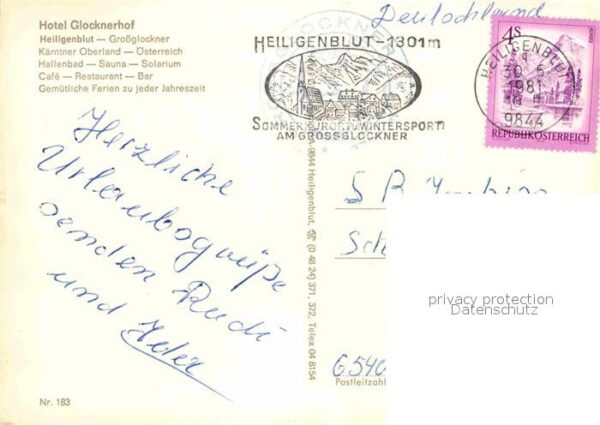 Hotel Glocknerhof
Heiligenblut — Großglockner
Kärntner Oberland — Österreich
Hallenbad — Sauna — Solarium
Café — Restaurant — Bar
Gemütliche Ferien zu jeder Jahreszeit
Deutschland
HEILIGENBLUT-1301m
SOMMERKURORT u WINTERSPORT
AM GROSSGLOCKNER
HEILIGENBLUT
1981
9844
4S
REPUBLIK ÖSTERREICH
Herzliche
Urlaubsgrüße
senden Rudi
und
A-9844 Heiligenblut, ☎ (0 48 24) 371, 372, Telex 04 8154
privacy protection
Datenschutz
Postleitzahl
Nr. 183